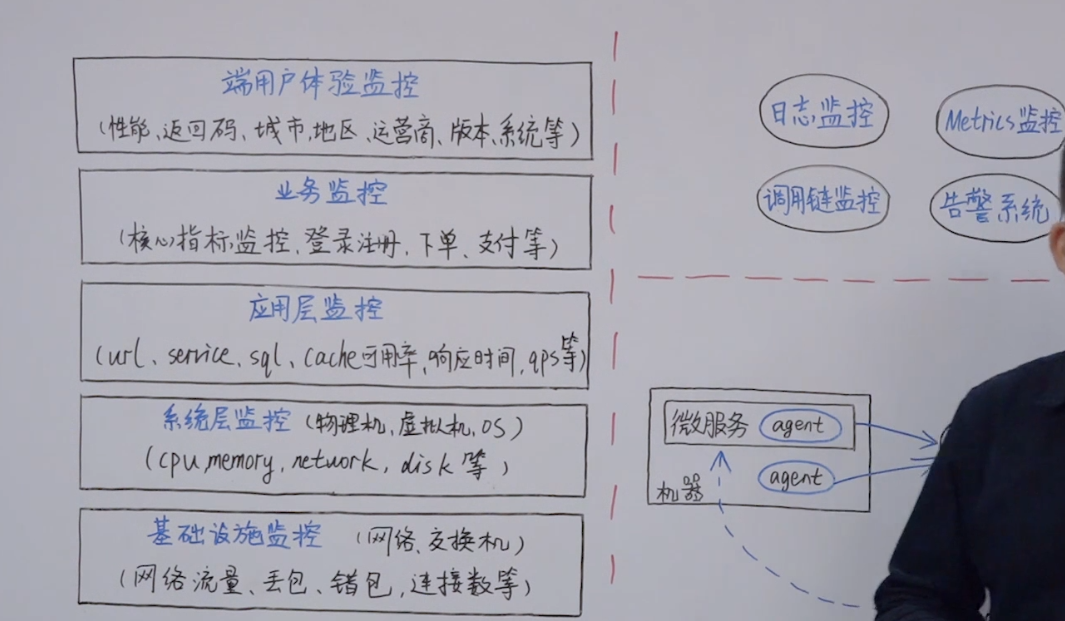 端用户体验监控
(性能、返回码、城市,地区、运营商、版本、系统等)
业务监控
(核心指标监控、登录注册、下单、支付等)
应用层监控
(url、service、sql、cache可用率,响应时间,qps等)
系统层监控 (物理机,虚拟机,OS)
(cpu,memory,network,disk等)
基础设施监控 (网络、交换机)
(网络流量、丢包、错包,连接数等)
日志监控
Metrics监控
调用链监控
告警系统
微服务 agent
agent
机器